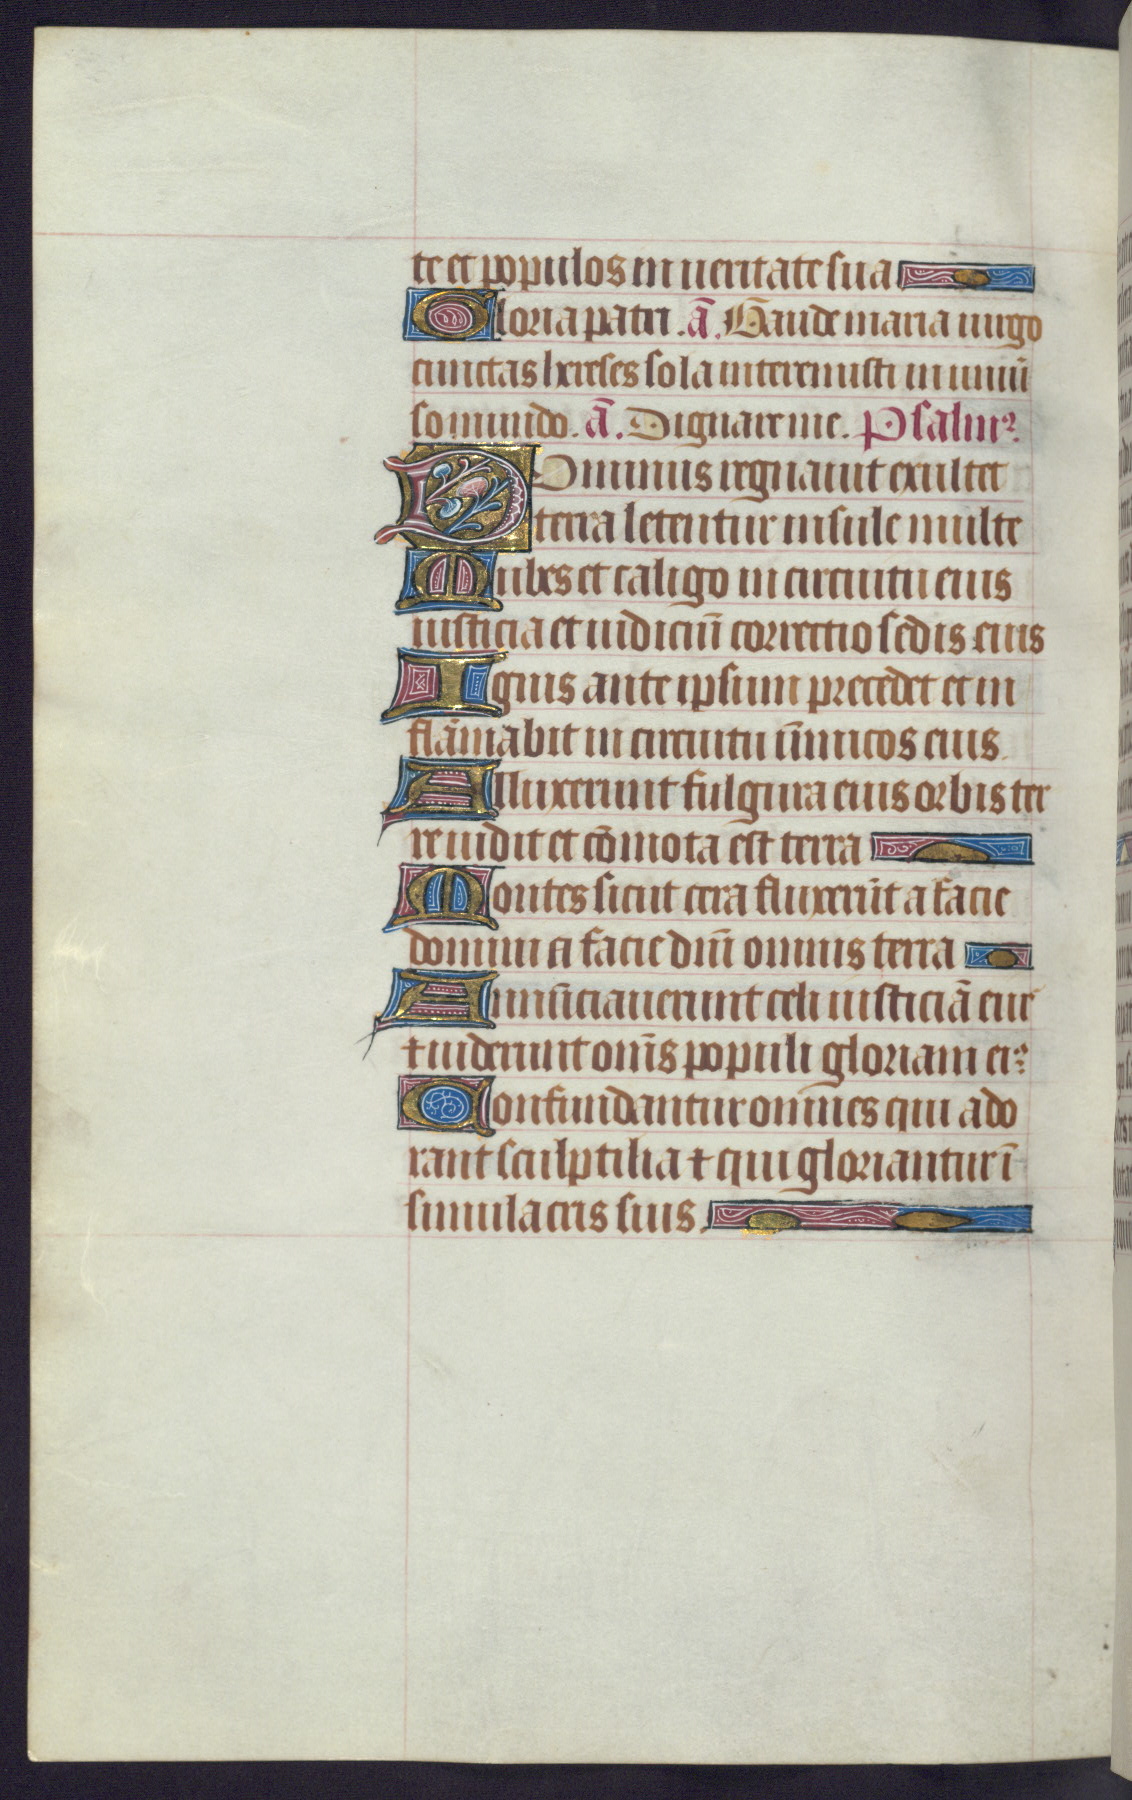 te et populos in ueritate sua
Gloria patri .a᷃. Gaude maria uirgo
cunctas hereses sola interemisti in uniũ
so mundo. a᷃. Dignare me. Psalmꝰ.
Dominus regnauit exultet
terra letentur insule multe
Nubes et caligo in circuitu eius
iusticia et iudiciũ correctio sedis eius
Ignis ante ipsum precedet et in
flãmabit in circuitu iñmicos eius
Alluxerunt fulgura eius orbis ter
re uidit et cõmota est terra
Montes sicut cera fluxerũt a facie
domini a facie dñi omnis terra
Annũciauerunt celi iusticiã eius
⁊ uiderunt omñs populi gloriam eiꝰ
Confundantur omnes qui ado
rant sculptilia ⁊ qui gloriantur ĩ
simulacris suis.